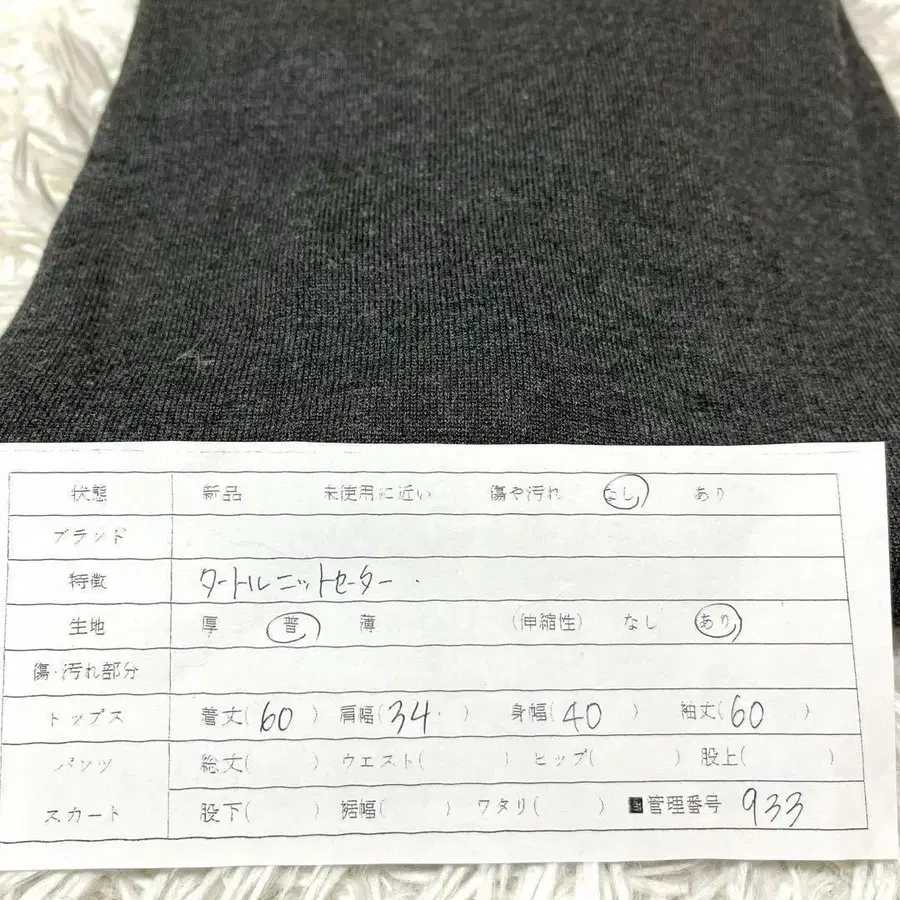 状態 新品 未使用に近い 傷や汚れ なし あり
ブランド
特徴 タートルニットセーター
生地 厚 普 薄 (伸縮性) なし あり
傷・汚れ部分
トップス 着丈(60) 肩幅(34) 身幅(40) 袖丈(60)
パンツ 総丈( ) ウエスト( ) ヒップ( ) 股上( )
スカート 股下( ) 裾幅( ) ワタリ( ) 管理番号 933